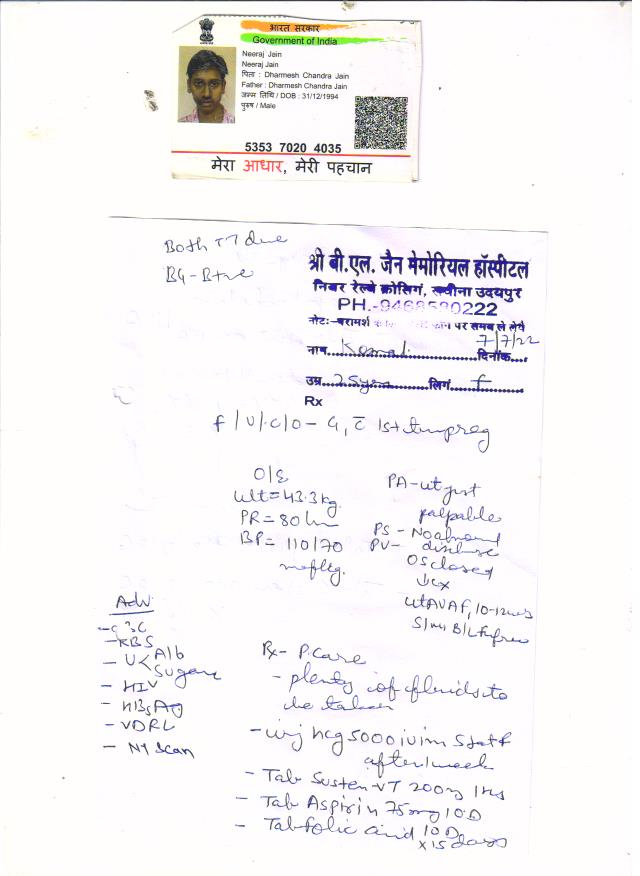 भारत सरकार
Government of India
Neeraj Jain
Neeraj Jain
पिता : Dharmesh Chandra Jain
Father : Dharmesh Chandra Jain
जन्म तिथि / DOB : 31/12/1994
पुरुष / Male
5353 7020 4035
मेरा आधार, मेरी पहचान
Both TT due
BG - B+ve
श्री बी.एल. जैन मेमोरियल हॉस्पीटल
निवर रेल्वे क्रोसिंग, सवीना उदयपुर
PH.-9468580222
नोटः-परामर्श पर समझ ले लेवे
7/7/22
नाम Komal दिनांक
उम्र 25yrs लिगं f
Rx
F/U/C/O - G, c 1st tm preg
O/E
Wt = 43.3 kg.
PR = 80/m
BP = 110/70
mmHg.
PA - ut just
palpable
PS - No abnormal
discharge
PV - OS closed
ut AVAF, 10-12wks
S/M B/L Fx free
Adv
- CBC
- RBS
- U < Alb
Sugar
- HIV
- HBsAg
- VDRL
- NT Scan
Rx - P. Care
- plenty of fluids to
be taken
- inj hcg 5000 iu im Stat &
after 1 week
- Tab Susten VT 200mg 1 HS
- Tab Aspirin 75mg 1 OD
- Tab folic acid 1 OD
x 15 days